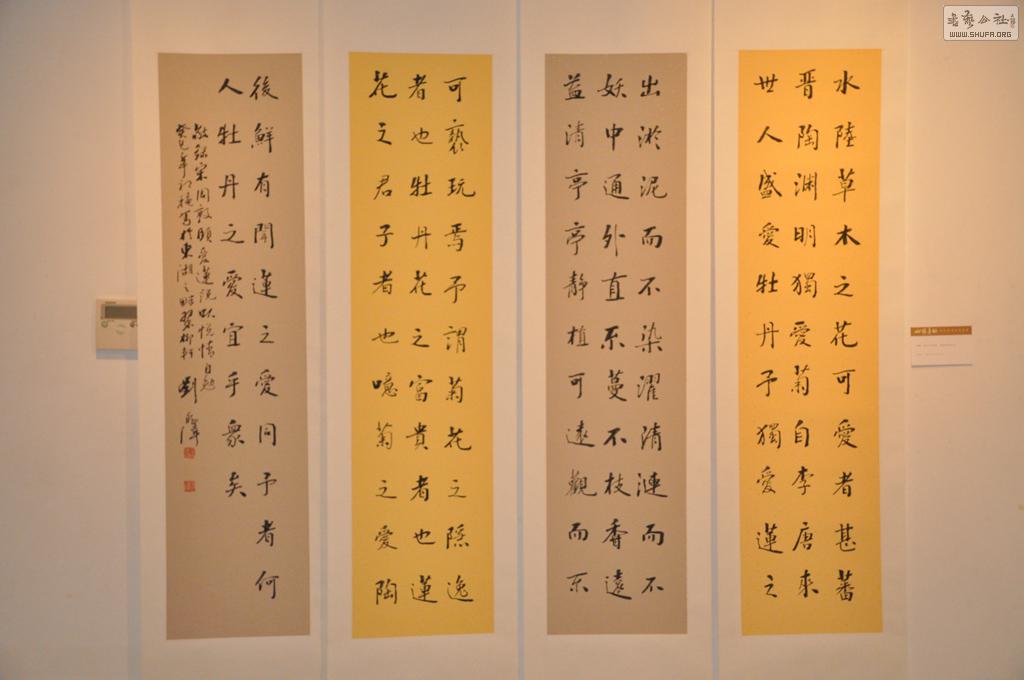 水陸草木之花可愛者甚蕃
晋陶渊明獨愛菊自李唐來
世人盛愛牡丹予獨愛蓮之
出淤泥而不染濯清漣而不
妖中通外直不蔓不枝香遠
益清亭亭靜植可遠觀而不
可褻玩焉予謂菊花之隱逸
者也牡丹花之富貴者也蓮
花之君子者也噫菊之愛陶
後鮮有聞蓮之愛同予者何
人牡丹之愛宜乎衆矣
敬録宋周敦頤愛蓮說以悅情自勉
癸巳年初寫於東湖之畔翠柳軒 劉
書藝公社
WWW.SHUFA.ORG